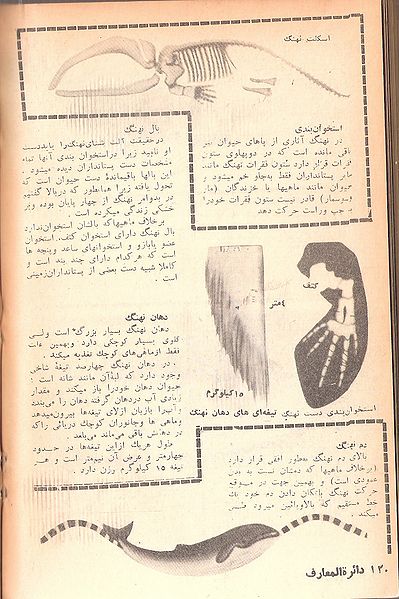 اسکلت نهنگ
استخوان‌بندی
در نهنگ آثاری از پاهای حیوان نیز
باقی مانده است که در دوپهلوی ستون
فقرات قرار دارد ستون فقرات نهنگ مانند
سایر پستانداران فقط به‌جلو خم میشود و
حیوان مانند ماهیها یا خزندگان (مار
وسوسمار) قادر نیست ستون فقرات خودرا
به چپ وراست حرکت دهد
بال نهنگ
درحقیقت آلت شنای‌نهنگ‌را بایددست
او نامید زیرا دراستخوان بندی آنها تمام
مشخصات دست پستانداران دیده میشود
این بالها باقیماندهٔ دست حیوان است که
تحول یافته زیرا همانطور که دربالا گفتیم
در بدوامر نهنگ از چهار پایان بوده ودر
خشکی زندگی میکرده است .
برخلاف ماهیهاکه بالشان استخوان‌ندارد
بال نهنگ دارای استخوان کتف، استخوان
عضو یابازو و استخوانهای ساعد وپنجه ها
است که هرکدام دارای چند بند است و
کاملا شبیه دست بعضی از پستانداران‌زمینی
است .
کتف
۴متر
۱۵کیلوگرم
استخوان‌بندی دست نهنگ
تیغه‌ای های دهان نهنگ
دهان نهنگ
دهان نهنگ بسیار بزرگ است ولی
گلوی بسیار کوچکی دارد وبهمین علت
فقط ازماهی‌های کوچک تغذیه میکند .
در دهان نهنگ چهارصد تیغهٔ شاخی
وجود دارد که لبهٔ‌آن مانند شانه است ؛
حیوان دهان خودرا باز میکند و مقدار
زیادی آب دردهان گرفته دهان را می‌بندد
وآنرا بازبان ازلای تیغه‌ها بیرون‌میدهد
وماهی ها وجانوران کوچک دریائی راکه
در دهانش باقی می‌ماند می‌بلعد .
طول هریك ازاین تیغه‌ها در حدود
چهارمتر و عرض آن نیم‌متر است و هر
تیغه ۱۵ کیلوگرم وزن دارد .
دم نهنگ
بالای دم نهنگ بطور افقی قرار دارد
(برخلاف ماهیها که دمشان نسبت به بدن
عمودی است) و بهمین جهت در موقع
حرکت نهنگ باتکان دادن دم خود یك
خط مستقیم که بالاوپائین میرود
میکند .
۱۲۰ دائرة‌المعارف